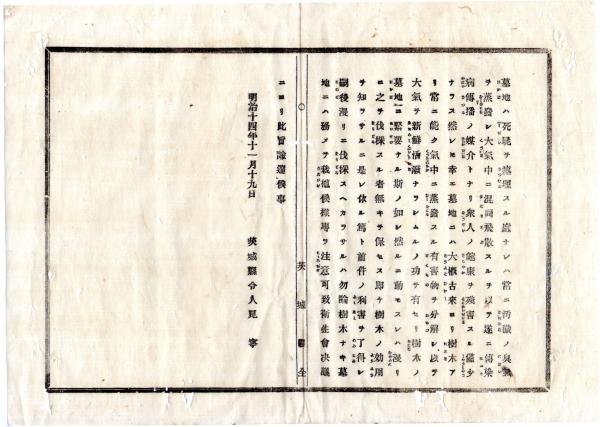 墓地ハ死屍ヲ埋瘞スル處ナレハ常ニ汚穢ノ臭氣
ヲ蒸發シ大氣中ニ混同飛散スルヲ以テ遂ニ傳染
病傳播ノ媒介トナリ衆人ノ健康ヲ殘害スル尠少
ナラス然レヒ幸ニ墓地ニハ大概古來ヨリ樹木ア
リ常ニ能ク氣中ニ蒸發スル有害物ヲ分解シ以テ
大氣ヲ新鮮活潑ナラシムルノ功ヲ有セリ樹木ノ
墓地ニ緊要ナル斯ノ如シ然ルニ動モスレハ濫リ
ニ之ヲ伐採スル者無キヲ保セス即チ樹木ノ効用
ヲ知ラサルニ是レ依ル篤ト前件ノ利害ヲ了得シ
嗣後漫リニ伐採スヘカラサルハ勿論樹木ナキ墓
地ニハ務メテ栽植候樣專ラ注意可致衛生會決議
ニヨリ此旨諭達候事
明治十四年十一月十九日
茨城縣令人見寧
茨城縣